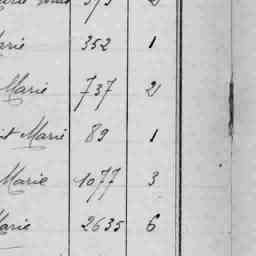 arie 352 1
Marie 737 2
it Marie 89 1
Marie 1077 3
Marie 2635 6